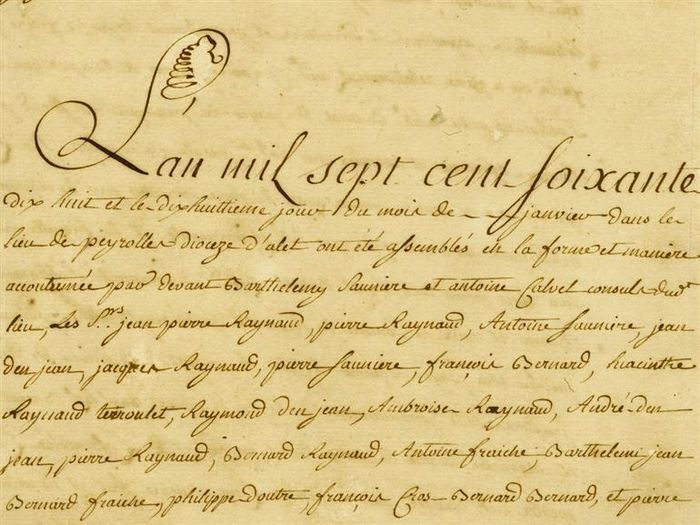 L'an mil sept cent soixante
dix huit et le dixhuitieme jour du mois de janvier dans le
lieu de peyrolles dioceze d'alet ont été assemblés en la forme et maniere
accoutumée par devant Barthelemy Sauniere et antoine Calvet consuls dud.t
lieu, Les S.rs jean pierre Raynaud, pierre Raynaud, Antoine Sauniere, jean
denjean, jacques Raynaud, pierre Sauniere, françois Bernard, hiacinthe
Raynaud terroulet, Raymond denjean, Ambroise Raynaud, André den
jean, pierre Raynaud, Bernard Raynaud, Antoine fraiche, Barthelemi jean
Bernard fraiche, philippe Doutre, françois Cros Bernard Bernard, et pierre